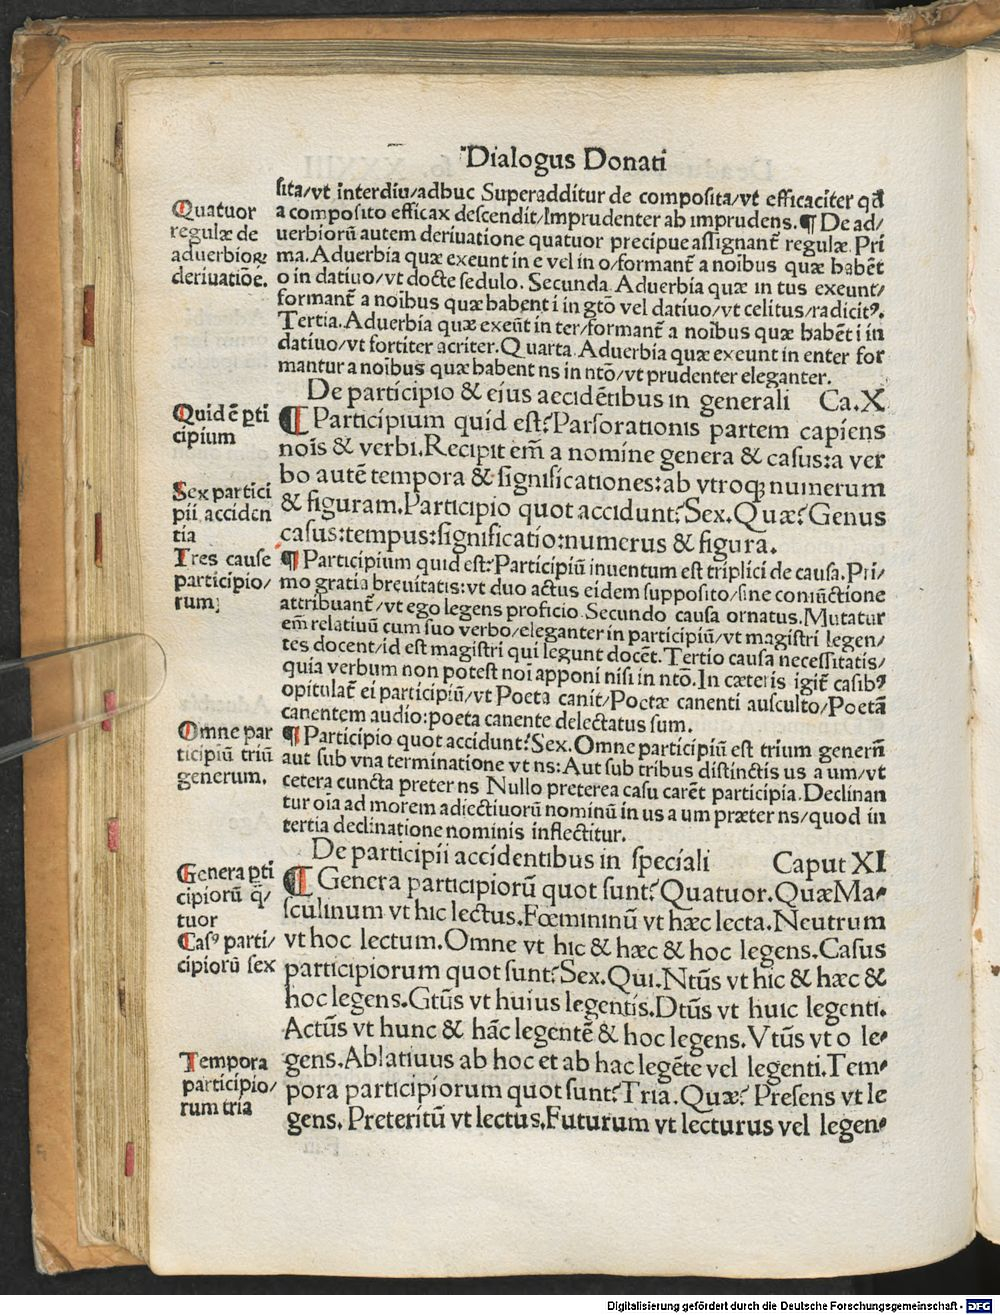 Dialogus Donati
sita/vt interdiu/adhuc Superadditur de composita/vt efficaciter qđ
a composito efficax descendit/Imprudenter ab imprudens.¶ De ad/
uerbiorū autem deriuatione quatuor precipue assignant̄ regulæ. Pri
ma. Aduerbia quæ exeunt in e vel in o/formant̄ a noībus quæ habēt
o in datiuo/vt docte sedulo. Secunda. Aduerbia quæ in tus exeunt/
formant̄ a noībus quæ habent i in gtō vel datiuo/vt celitus/radicitꝰ.
Tertia. Aduerbia quæ exeūt in ter/formant̄ a noībus quæ habēt i in
datiuo/vt fortiter acriter. Quarta. Aduerbia quæ exeunt in enter for
mantur a noībus quæ habent ns in ntō/vt prudenter eleganter.
Quatuor
regulæ de
aduerbioꝝ
deriuatiōe.
De participio & eius accidētibus in generali Ca.X
¶ Participium quid est? Pars orationis partem capiens
nois̄ & verbi. Recipit em̄ a nomine genera & casus: a ver
bo autē tempora & significationes: ab vtroqꝫ numerum
& figuram. Participio quot accidunt? Sex. Quæ? Genus
casus: tempus: significatio: numerus & figura.
Quid ē ꝑti
cipium
Sex partici
pii acciden
tia
¶ Participium quid est? Participiū inuentum est triplici de causa. Pri/
mo gratia breuitatis: vt duo actus eidem supposito/sine coniūctione
attribuant̄/vt ego legens proficio. Secundo causa ornatus. Mutatur
em̄ relatiuū cum suo verbo/eleganter in participiū/vt magistri legen/
tes docent/id est magistri qui legunt docēt. Tertio causa necessitatis/
quia verbum non potest noī apponi nisi in ntō. In cæteris igit̄ casibꝰ
opitulat̄ ei participiū/vt Poeta canit/Poetæ canenti ausculto/Poetā
canentem audio: poeta canente delectatus sum.
Tres cause
participio/
rum;
¶ Participio quot accidunt? Sex. Omne participiū est trium generū
aut sub vna terminatione vt ns: Aut sub tribus distinctis us a um/vt
cetera cuncta preter ns Nullo preterea casu carēt participia. Declinan
tur oīa ad morem adiectiuorū nominū in us a um præter ns/quod in
tertia declinatione nominis inflectitur.
Omne par
ticipiū triū
generum.
De participii accidentibus in speciali Caput XI
¶ Genera participiorū quot sunt? Quatuor. Quæ Ma-
sculinum vt hic lectus. Fœmininū vt hæc lecta. Neutrum
vt hoc lectum. Omne vt hic & hæc & hoc legens. Casus
participiorum quot sunt? Sex. Qui. Ntūs vt hic & hæc &
hoc legens. Gtūs vt huius legentis. Dtūs vt huic legenti.
Actūs vt hunc & hāc legentē & hoc legens. Vtūs vt o le-
gens. Ablatiuus ab hoc et ab hac legēte vel legenti. Tem-
pora participiorum quot sunt? Tria. Quæ? Presens vt le
gens. Preteritū vt lectus. Futurum vt lecturus vel legen-
Genera ꝑti
cipiorū q̄/
tuor
Casꝰ parti/
cipiorū sex
Tempora
participio/
rum tria
Digitalisierung gefördert durch die Deutsche Forschungsgemeinschaft - DFG